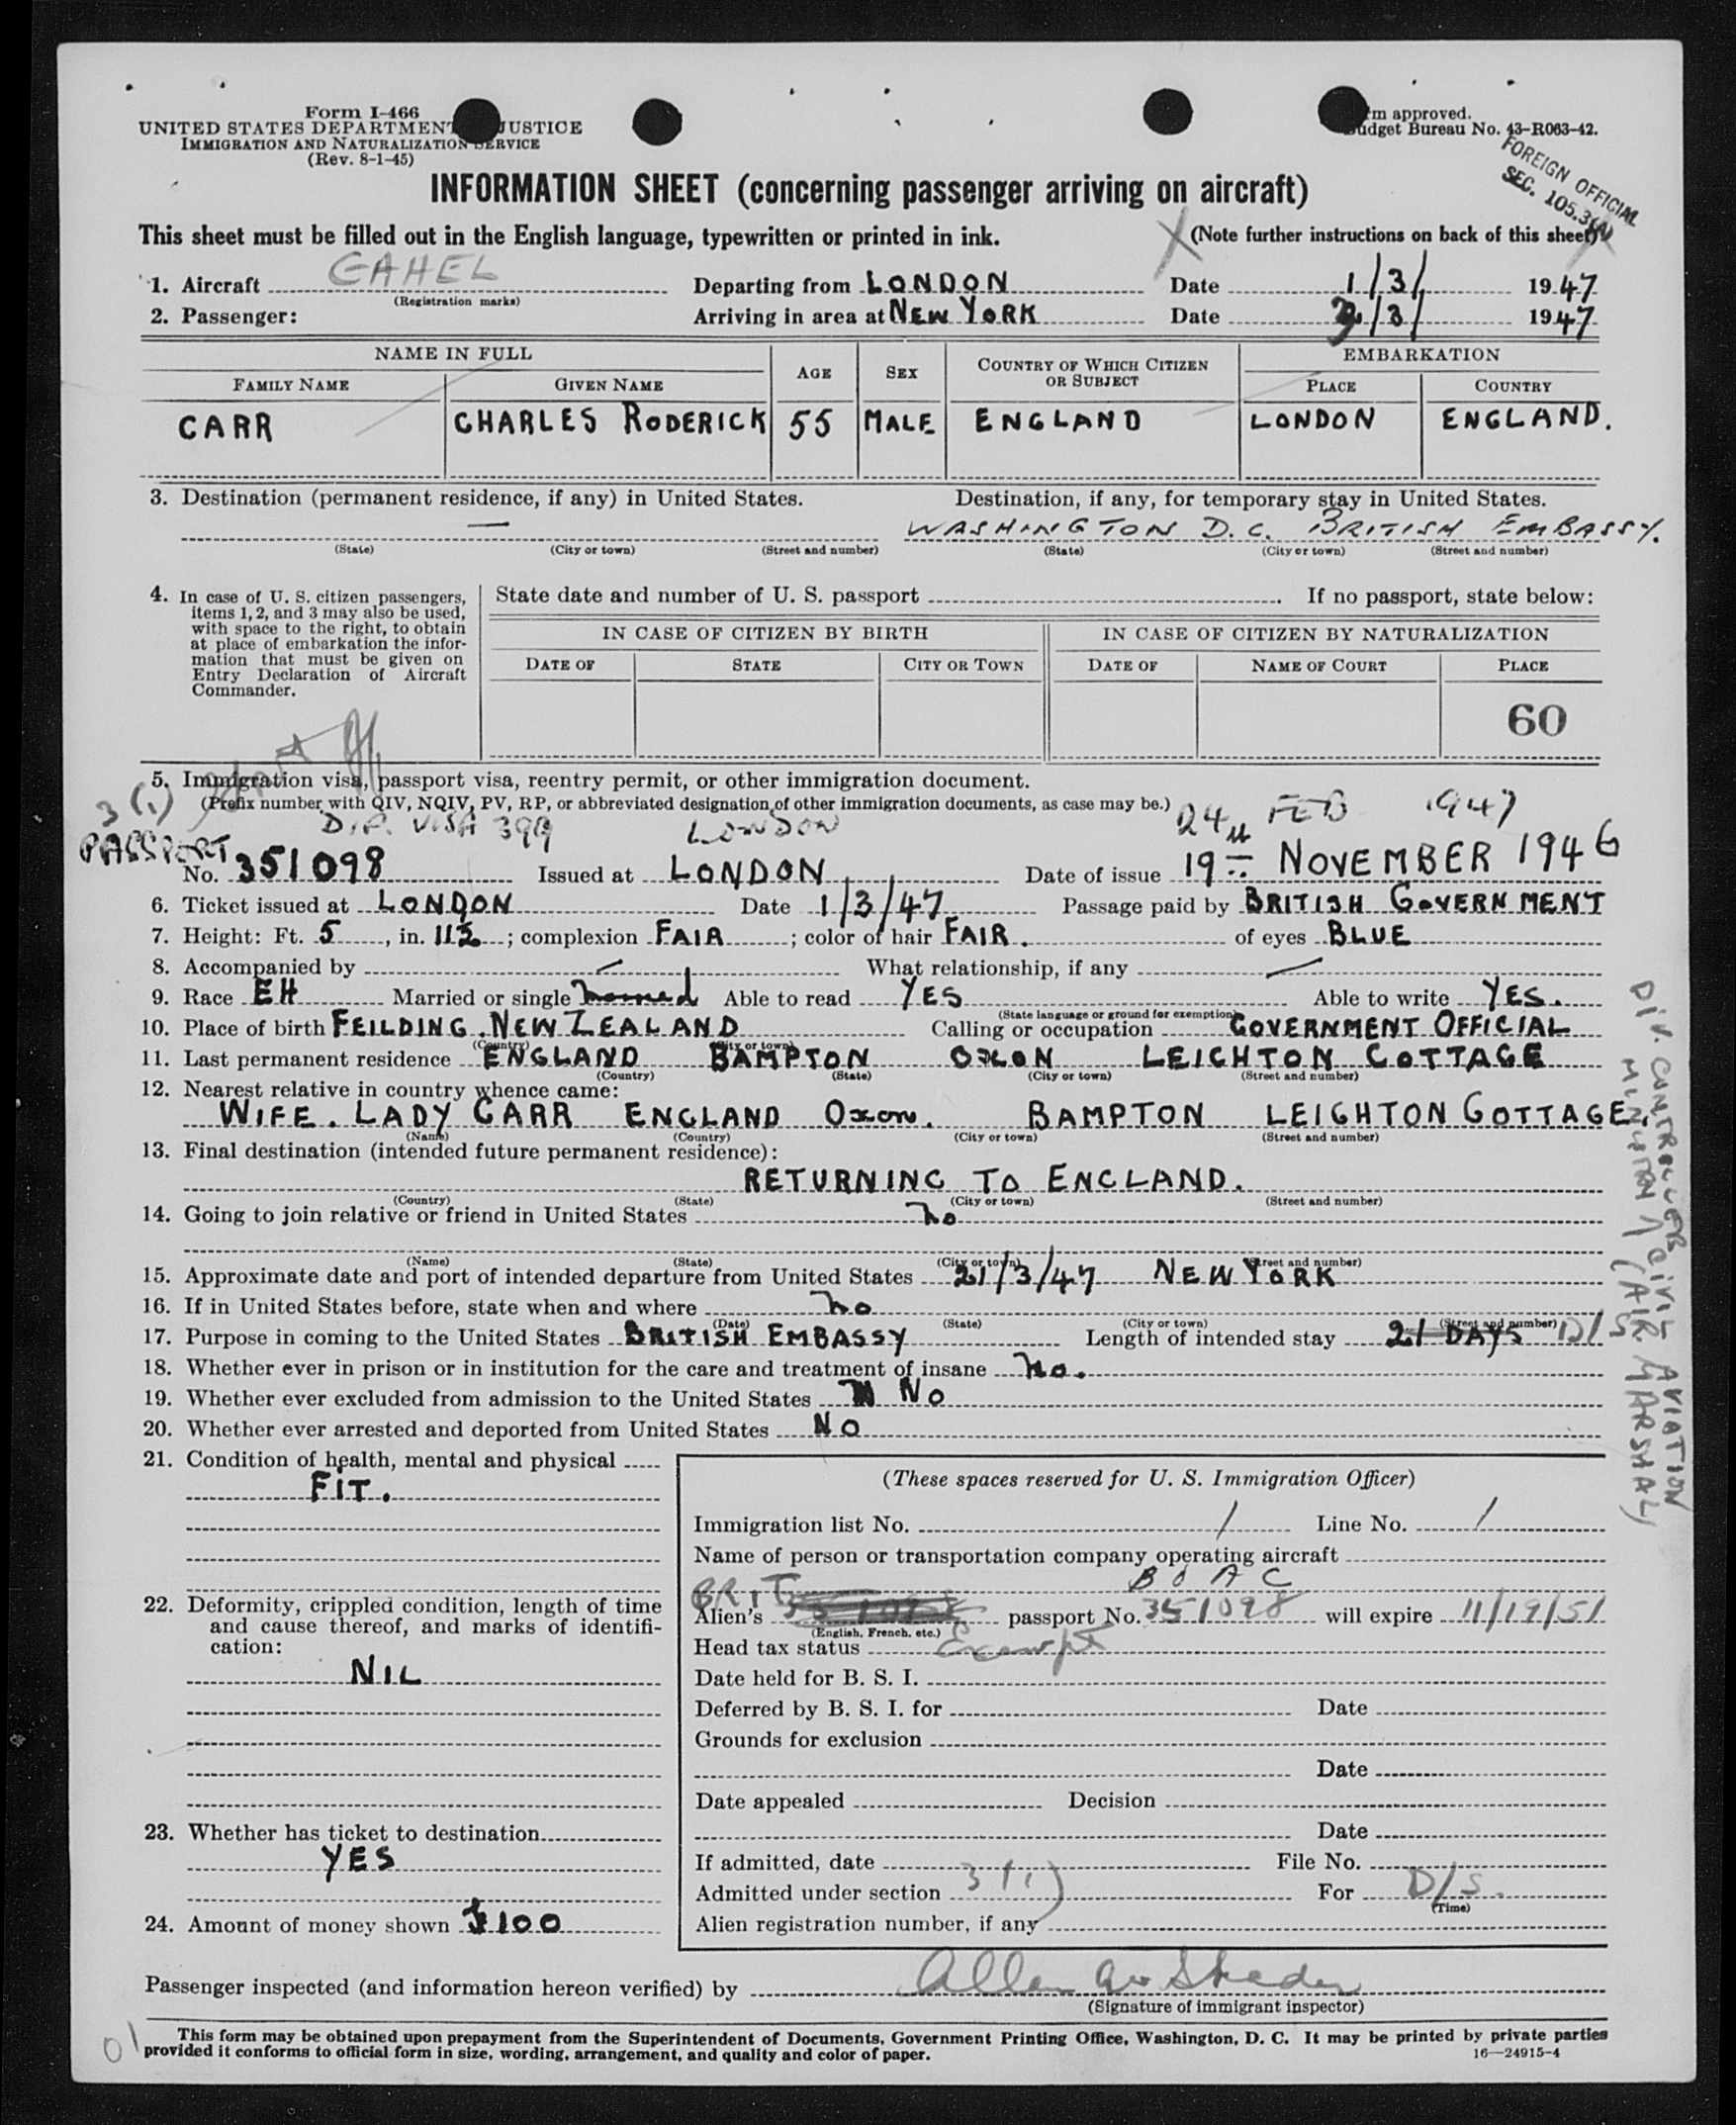 Form I-466
UNITED STATES DEPARTMENT JUSTICE
IMMIGRATION AND NATURALIZATION SERVICE
(Rev. 8-1-45)
m approved.
Budget Bureau No. 43-R063-42.
FOREIGN OFFICIAL
SEC. 105.3
INFORMATION SHEET (concerning passenger arriving on aircraft)
This sheet must be filled out in the English language, typewritten or printed in ink. (Note further instructions on back of this sheet)
1. Aircraft GAHEL Departing from LONDON Date 1/3/ 1947
(Registration marks)
2. Passenger: Arriving in area at NEW YORK Date 3/3/ 1947
NAME IN FULL AGE SEX COUNTRY OF WHICH CITIZEN OR SUBJECT EMBARKATION
FAMILY NAME GIVEN NAME PLACE COUNTRY
CARR CHARLES RODERICK 55 MALE ENGLAND LONDON ENGLAND.
3. Destination (permanent residence, if any) in United States. Destination, if any, for temporary stay in United States.
— WASHINGTON D.C. BRITISH EMBASSY.
(State) (City or town) (Street and number) (State) (City or town) (Street and number)
4. In case of U. S. citizen passengers,
items 1, 2, and 3 may also be used,
with space to the right, to obtain
at place of embarkation the infor-
mation that must be given on
Entry Declaration of Aircraft
Commander.
State date and number of U. S. passport . If no passport, state below:
IN CASE OF CITIZEN BY BIRTH IN CASE OF CITIZEN BY NATURALIZATION
DATE OF STATE CITY OR TOWN DATE OF NAME OF COURT PLACE
60
5. Immigration visa, passport visa, reentry permit, or other immigration document.
3(1) (Prefix number with QIV, NQIV, PV, RP, or abbreviated designation of other immigration documents, as case may be.)
DIP. VISA 399 LONDON 24 FEB 1947
PASSPORT
No. 351098 Issued at LONDON Date of issue 19TH NOVEMBER 1946
6. Ticket issued at LONDON Date 1/3/47 Passage paid by BRITISH GOVERNMENT
7. Height: Ft. 5, in. 11½; complexion FAIR; color of hair FAIR. of eyes BLUE
8. Accompanied by — What relationship, if any —
9. Race EH Married or single married Able to read YES Able to write YES.
(State language or ground for exemption)
10. Place of birth FEILDING. NEW ZEALAND Calling or occupation GOVERNMENT OFFICIAL
(Country) (City or town)
11. Last permanent residence ENGLAND BAMPTON OXON LEIGHTON COTTAGE
(Country) (State) (City or town) (Street and number)
12. Nearest relative in country whence came:
WIFE. LADY CARR ENGLAND Oxon. BAMPTON LEIGHTON COTTAGE.
(Name) (Country) (City or town) (Street and number)
13. Final destination (intended future permanent residence):
RETURNING TO ENGLAND.
(Country) (State) (City or town) (Street and number)
14. Going to join relative or friend in United States No
(Name) (State) (City or town) (Street and number)
15. Approximate date and port of intended departure from United States 21/3/47 NEW YORK
16. If in United States before, state when and where No
(Date) (State) (City or town) (Street and number)
17. Purpose in coming to the United States BRITISH EMBASSY Length of intended stay 21 DAYS D/S
18. Whether ever in prison or in institution for the care and treatment of insane No.
19. Whether ever excluded from admission to the United States No
20. Whether ever arrested and deported from United States NO
DIV. CONTROLLER
MINISTRY OF CIVIL AVIATION
(AIR MARSHAL)
21. Condition of health, mental and physical
FIT.
22. Deformity, crippled condition, length of time
and cause thereof, and marks of identifi-
cation:
NIL
23. Whether has ticket to destination
YES
24. Amount of money shown $100
(These spaces reserved for U. S. Immigration Officer)
Immigration list No. 1 Line No. 1
Name of person or transportation company operating aircraft
BOAC
BRIT
Alien's passport No. 351098 will expire 11/19/51
(English, French, etc.)
Head tax status Exempt
Date held for B. S. I.
Deferred by B. S. I. for Date
Grounds for exclusion
Date
Date appealed Decision
Date
If admitted, date File No.
Admitted under section 3(1) For D/S.
(Time)
Alien registration number, if any
Passenger inspected (and information hereon verified) by
(Signature of immigrant inspector)
This form may be obtained upon prepayment from the Superintendent of Documents, Government Printing Office, Washington, D. C. It may be printed by private parties
provided it conforms to official form in size, wording, arrangement, and quality and color of paper.
16—24915-4